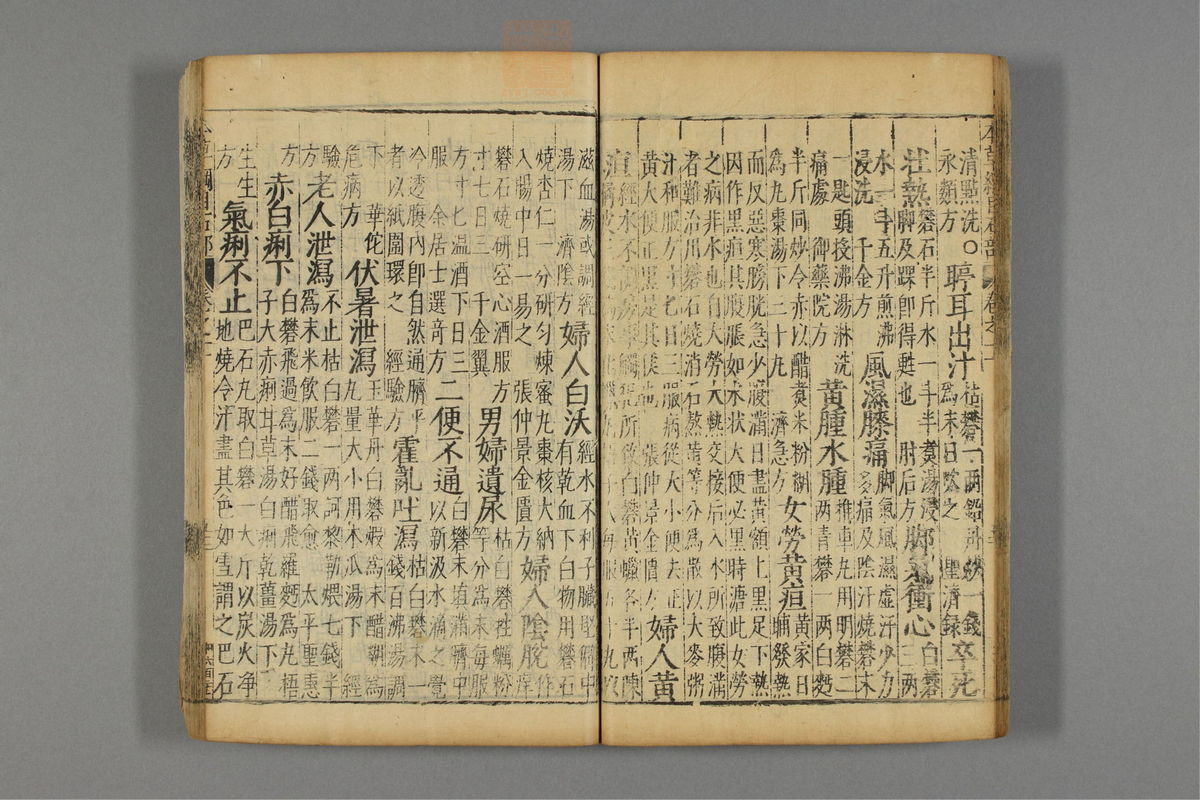 清點洗○聤耳出汁枯礬一兩鉛丹炒一錢卒死
永類方 為末日吹之 聖濟録
壮熱礬石半斤水一斗半煑湯浸脚氣衝心白礬
脚及踝即得甦也 肘后方 三兩
水一斗五升煎沸風濕膝痛脚氣風濕虛汗少力
浸洗 千金方 多痛及陰汗燒礬末
一匙頭投沸湯淋洗黄腫水腫推車丸用明礬二
痛處 御藥院方 兩青礬一兩白麪
半斤同炒令赤以醋煑米粉糊女勞黄疸黄家日
為丸棗湯下三十丸 濟急方 晡發熱
而反惡寒膀胱急少腹滿目盡黄額上黑足下熱
因作黑疸其腹脹如水状大便必黑時溏此女勞
之病非水也自大勞大熱交接后入水所致腹滿
者難治用礬石燒消石熬黄等分為散以大麥粥
汁和服方寸匕日三服病從大小便去正
黄大便正黑是其候也 張仲景金匱方 婦人黄
疸經水不調房事觸犯所致白礬黄蠟各半兩陳
滋血湯或調經
湯下 濟陰方 婦人白沃經水不利子臟堅癖中
有乾血下白物用礬石
燒杏仁一分研匀煉蜜丸棗核大納
入腸中日一易之 張仲景金匱方 婦人陰脱作痒
礬石燒研空心酒服方
寸七日三 千金翼 男婦遺尿枯白礬牡蠣粉
等分為末每服
方寸匕温酒下日三
服 余居士選竒方 二便不通白礬末填滿臍中
以新汲水滴之覺
冷透腹内即自然通臍平
者以紙圍環之 經驗方 霍亂吐瀉枯白礬末一
錢百沸湯調
下 華佗
危病方 伏暑泄瀉玉華丹白礬煆為末醋糊為
丸量大小用木瓜湯下 經
驗方 老人泄瀉不止枯白礬一兩訶黎勒煨七錢半
為末米飲服二錢取愈 太平聖惠
方 赤白痢下白礬飛過為末好醋飛羅麪為丸梧
子大赤痢甘草湯白痢乾薑湯下
生生
方 氣痢不止巴石丸取白礬一大斤以炭火净
地燒令汗盡其色如雪謂之巴石